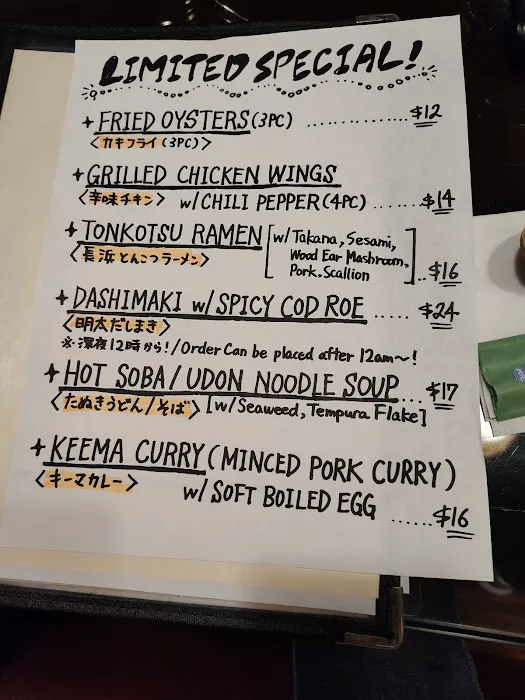 LIMITED SPECIAL!
+ FRIED OYSTERS (3PC) .............. $12
<カキフライ (3PC)>
+ GRILLED CHICKEN WINGS
<辛味チキン> w/ CHILI PEPPER (4PC) ...... $14
+ TONKOTSU RAMEN [w/ Takana, Sesami,
<長浜とんこつラーメン> Wood Ear Mashroom,
Pork, Scallion] .. $16
+ DASHIMAKI w/ SPICY COD ROE ..... $24
<明太だしまき>
※深夜12時から!/Order Can be placed after 12am~!
+ HOT SOBA / UDON NOODLE SOUP.... $17
<たぬきうどん/そば> [w/ Seaweed, Tempura Flake]
+ KEEMA CURRY (MINCED PORK CURRY)
<キーマカレー> w/ SOFT BOILED EGG
...... $16